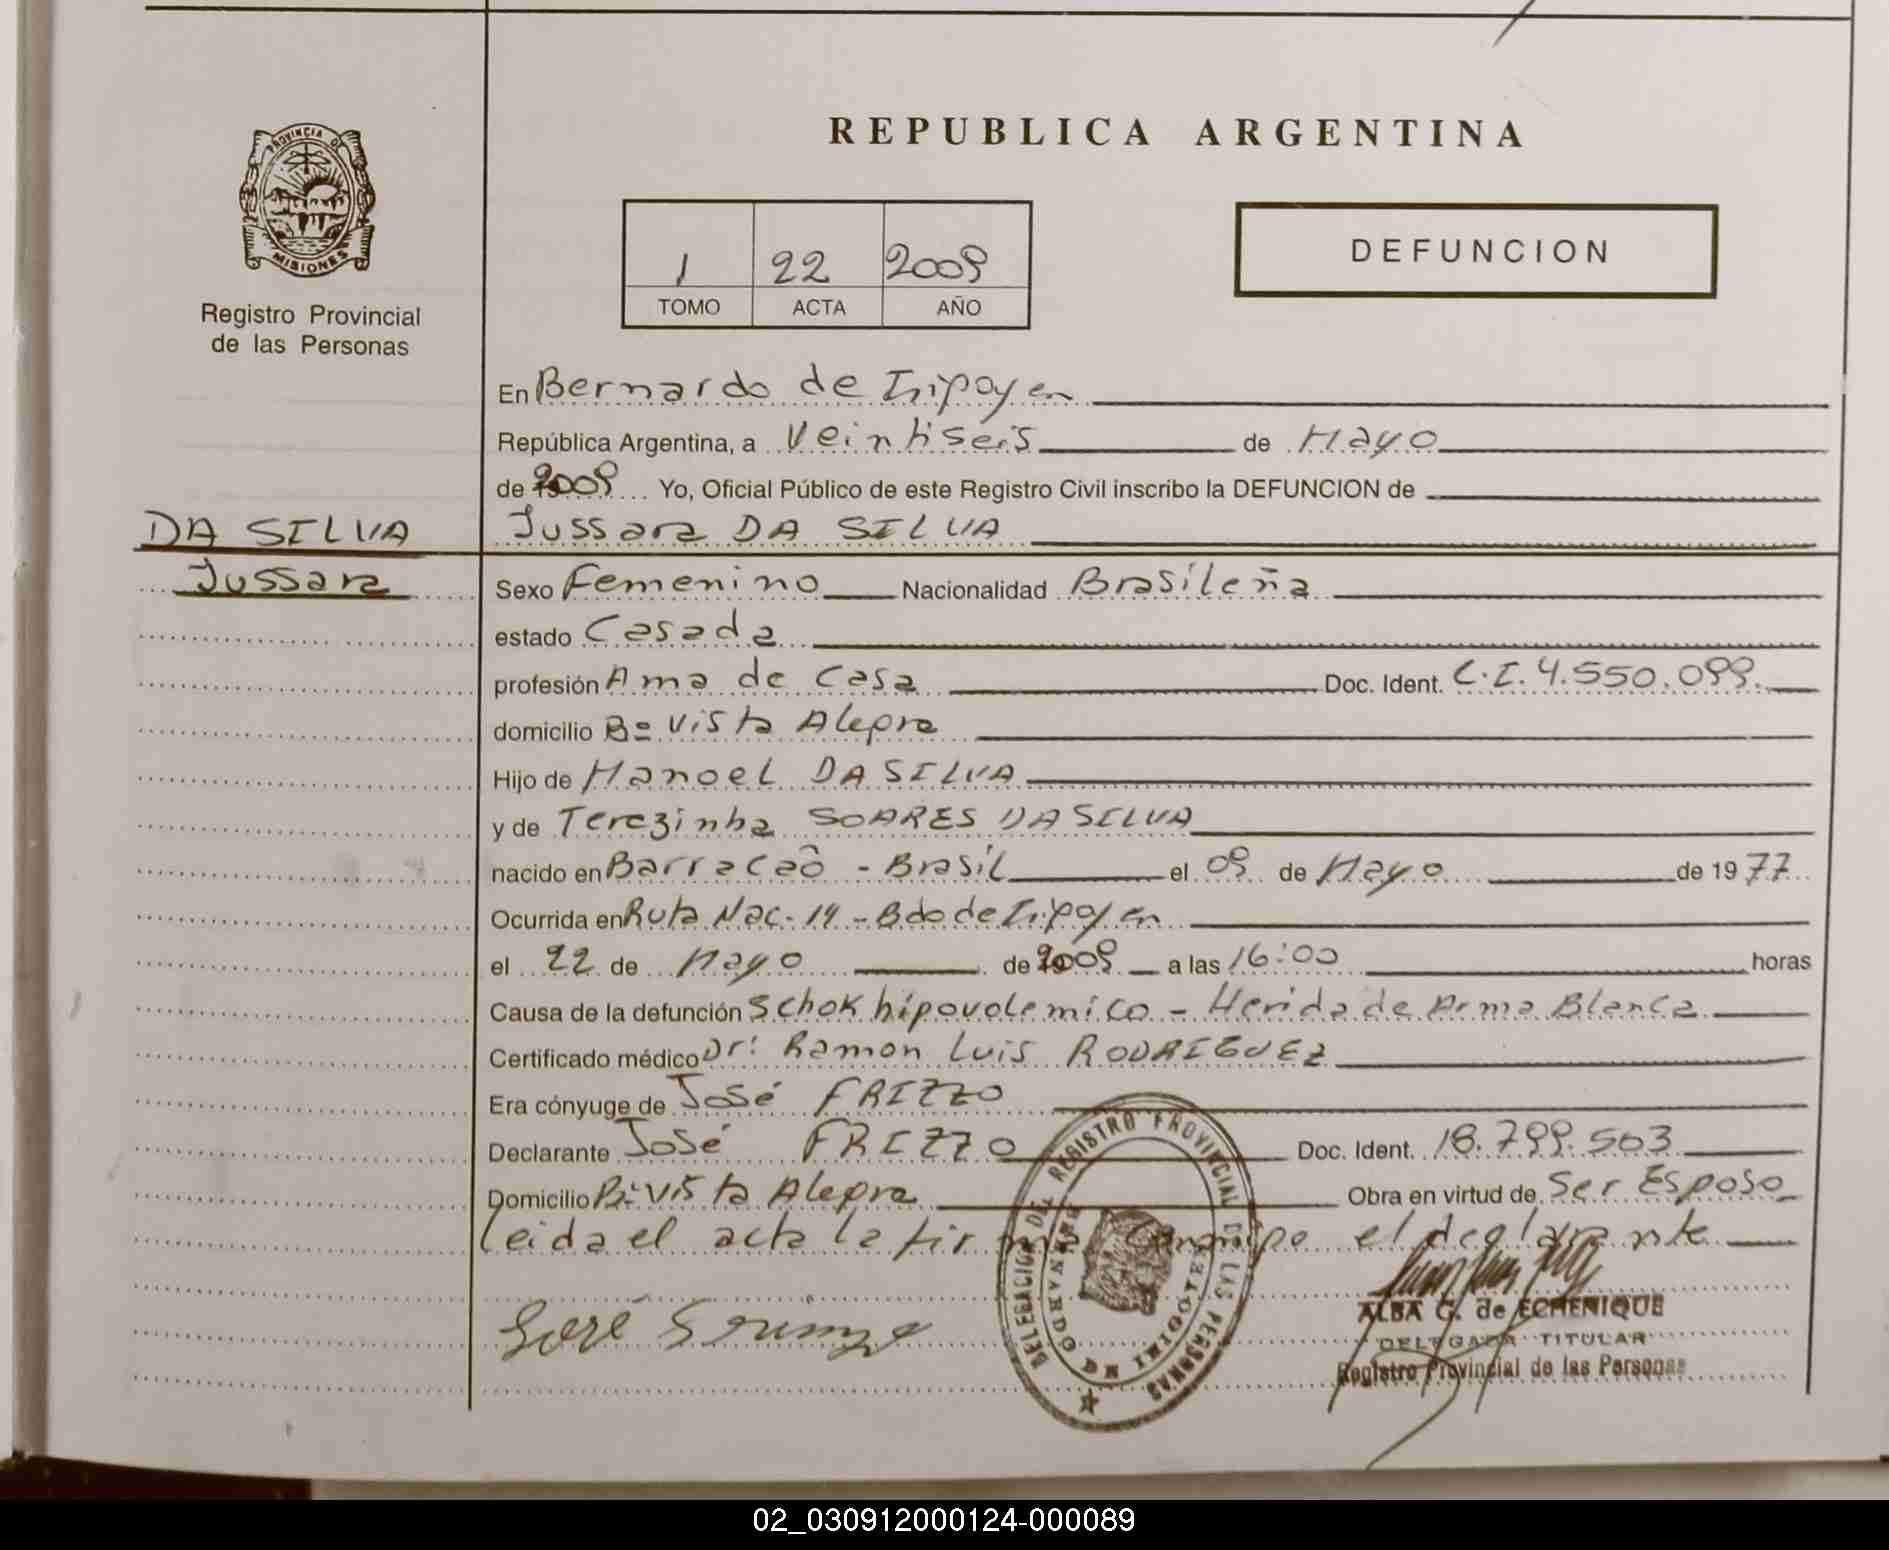 REPUBLICA ARGENTINA
PROVINCIA DE
MISIONES
Registro Provincial
de las Personas
1 22 2009
TOMO ACTA AÑO
DEFUNCION
En Bernardo de Irigoyen
República Argentina, a Veintiseis de Mayo
de 2009 Yo, Oficial Público de este Registro Civil inscribo la DEFUNCION de
DA SILVA
Jussara
Jussara DA SILVA
Sexo Femenino Nacionalidad Brasileña
estado Casada
profesión Ama de Casa Doc. Ident. C.I. 4.550.099.
domicilio Bº Vista Alegre
Hijo de Manoel DA SILVA
y de Terezinha SOARES DA SILVA
nacido en Barracaô - Brasil el 09 de Mayo de 1977
Ocurrida en Ruta Nac. 14 - Bdo de Irigoyen
el 22 de Mayo de 2009 a las 16:00 horas
Causa de la defunción Schok hipovolemico - Herida de Arma Blanca
Certificado médico Dr: Ramon Luis RODRIGUEZ
Era cónyuge de José FRIZZO
Declarante José FRIZZO Doc. Ident. 18.799.503
Domicilio Bº Vista Alegre Obra en virtud de Ser Esposo
leida el acta la firma conmigo el declarante
DELEGACION DEL REGISTRO PROVINCIAL DE LAS PERSONAS
José
ALBA G. de ECHENIQUE
DELEGADA TITULAR
Registro Provincial de las Personas
02_030912000124-000089